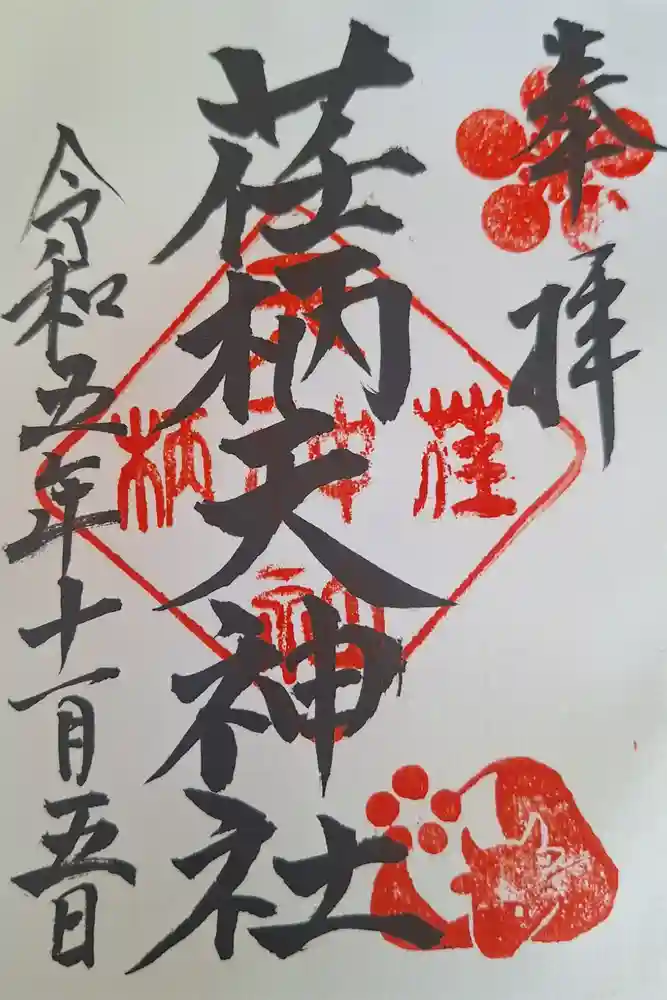 奉拝
荏柄天神社
令和五年十一月五日
荏
柄
天
神
社